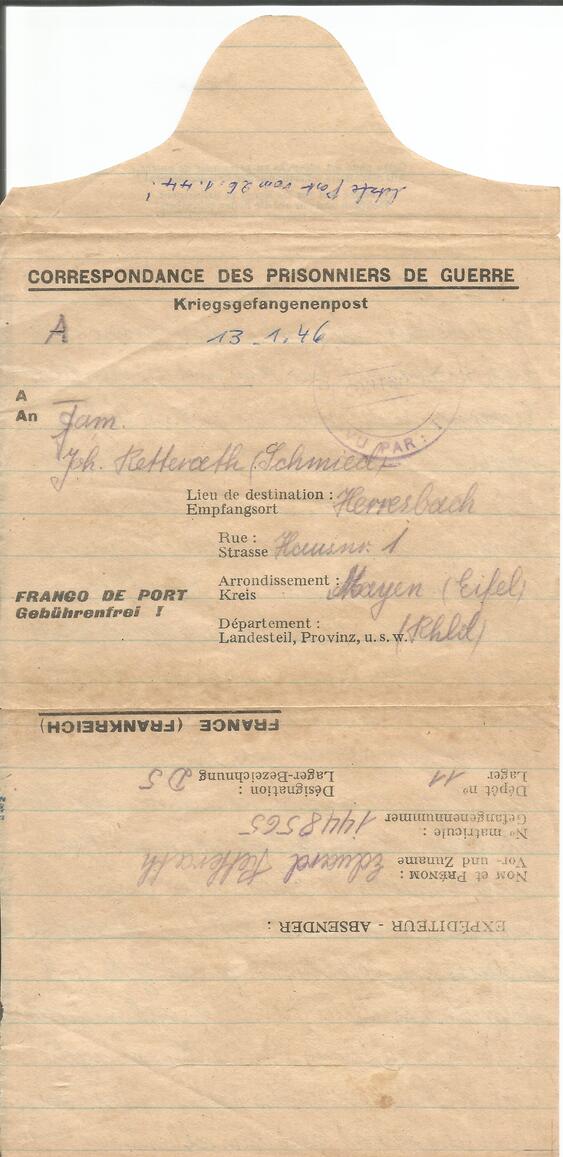 letzte Post vom 26.1.44!
CORRESPONDANCE DES PRISONNIERS DE GUERRE
Kriegsgefangenenpost
A
13.1.46
A
An
Fam.
Joh. Retterath (Schmied)
Lieu de destination :
Empfangsort
Herresbach
Rue :
Strasse
Hausnr. 1
Arrondissement :
Kreis
Mayen (Eifel)
FRANCO DE PORT
Gebührenfrei !
Département :
Landesteil, Provinz, u. s. w.
(Rhld)
VU PAR :
EXPÉDITEUR - ABSENDER :
NOM et PRÉNOM :
Vor- und Zuname
Eduard Retterath
No matricule :
Gefangenennummer
1448565
Dépôt no
Lager
11
Désignation :
Lager-Bezeichnung
D 5
FRANCE (FRANKREICH)